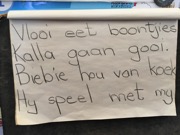 Vlooi eet boontjies
Kalla gaan gooi.
Bieb'ie hou van koek
Hy speel met my